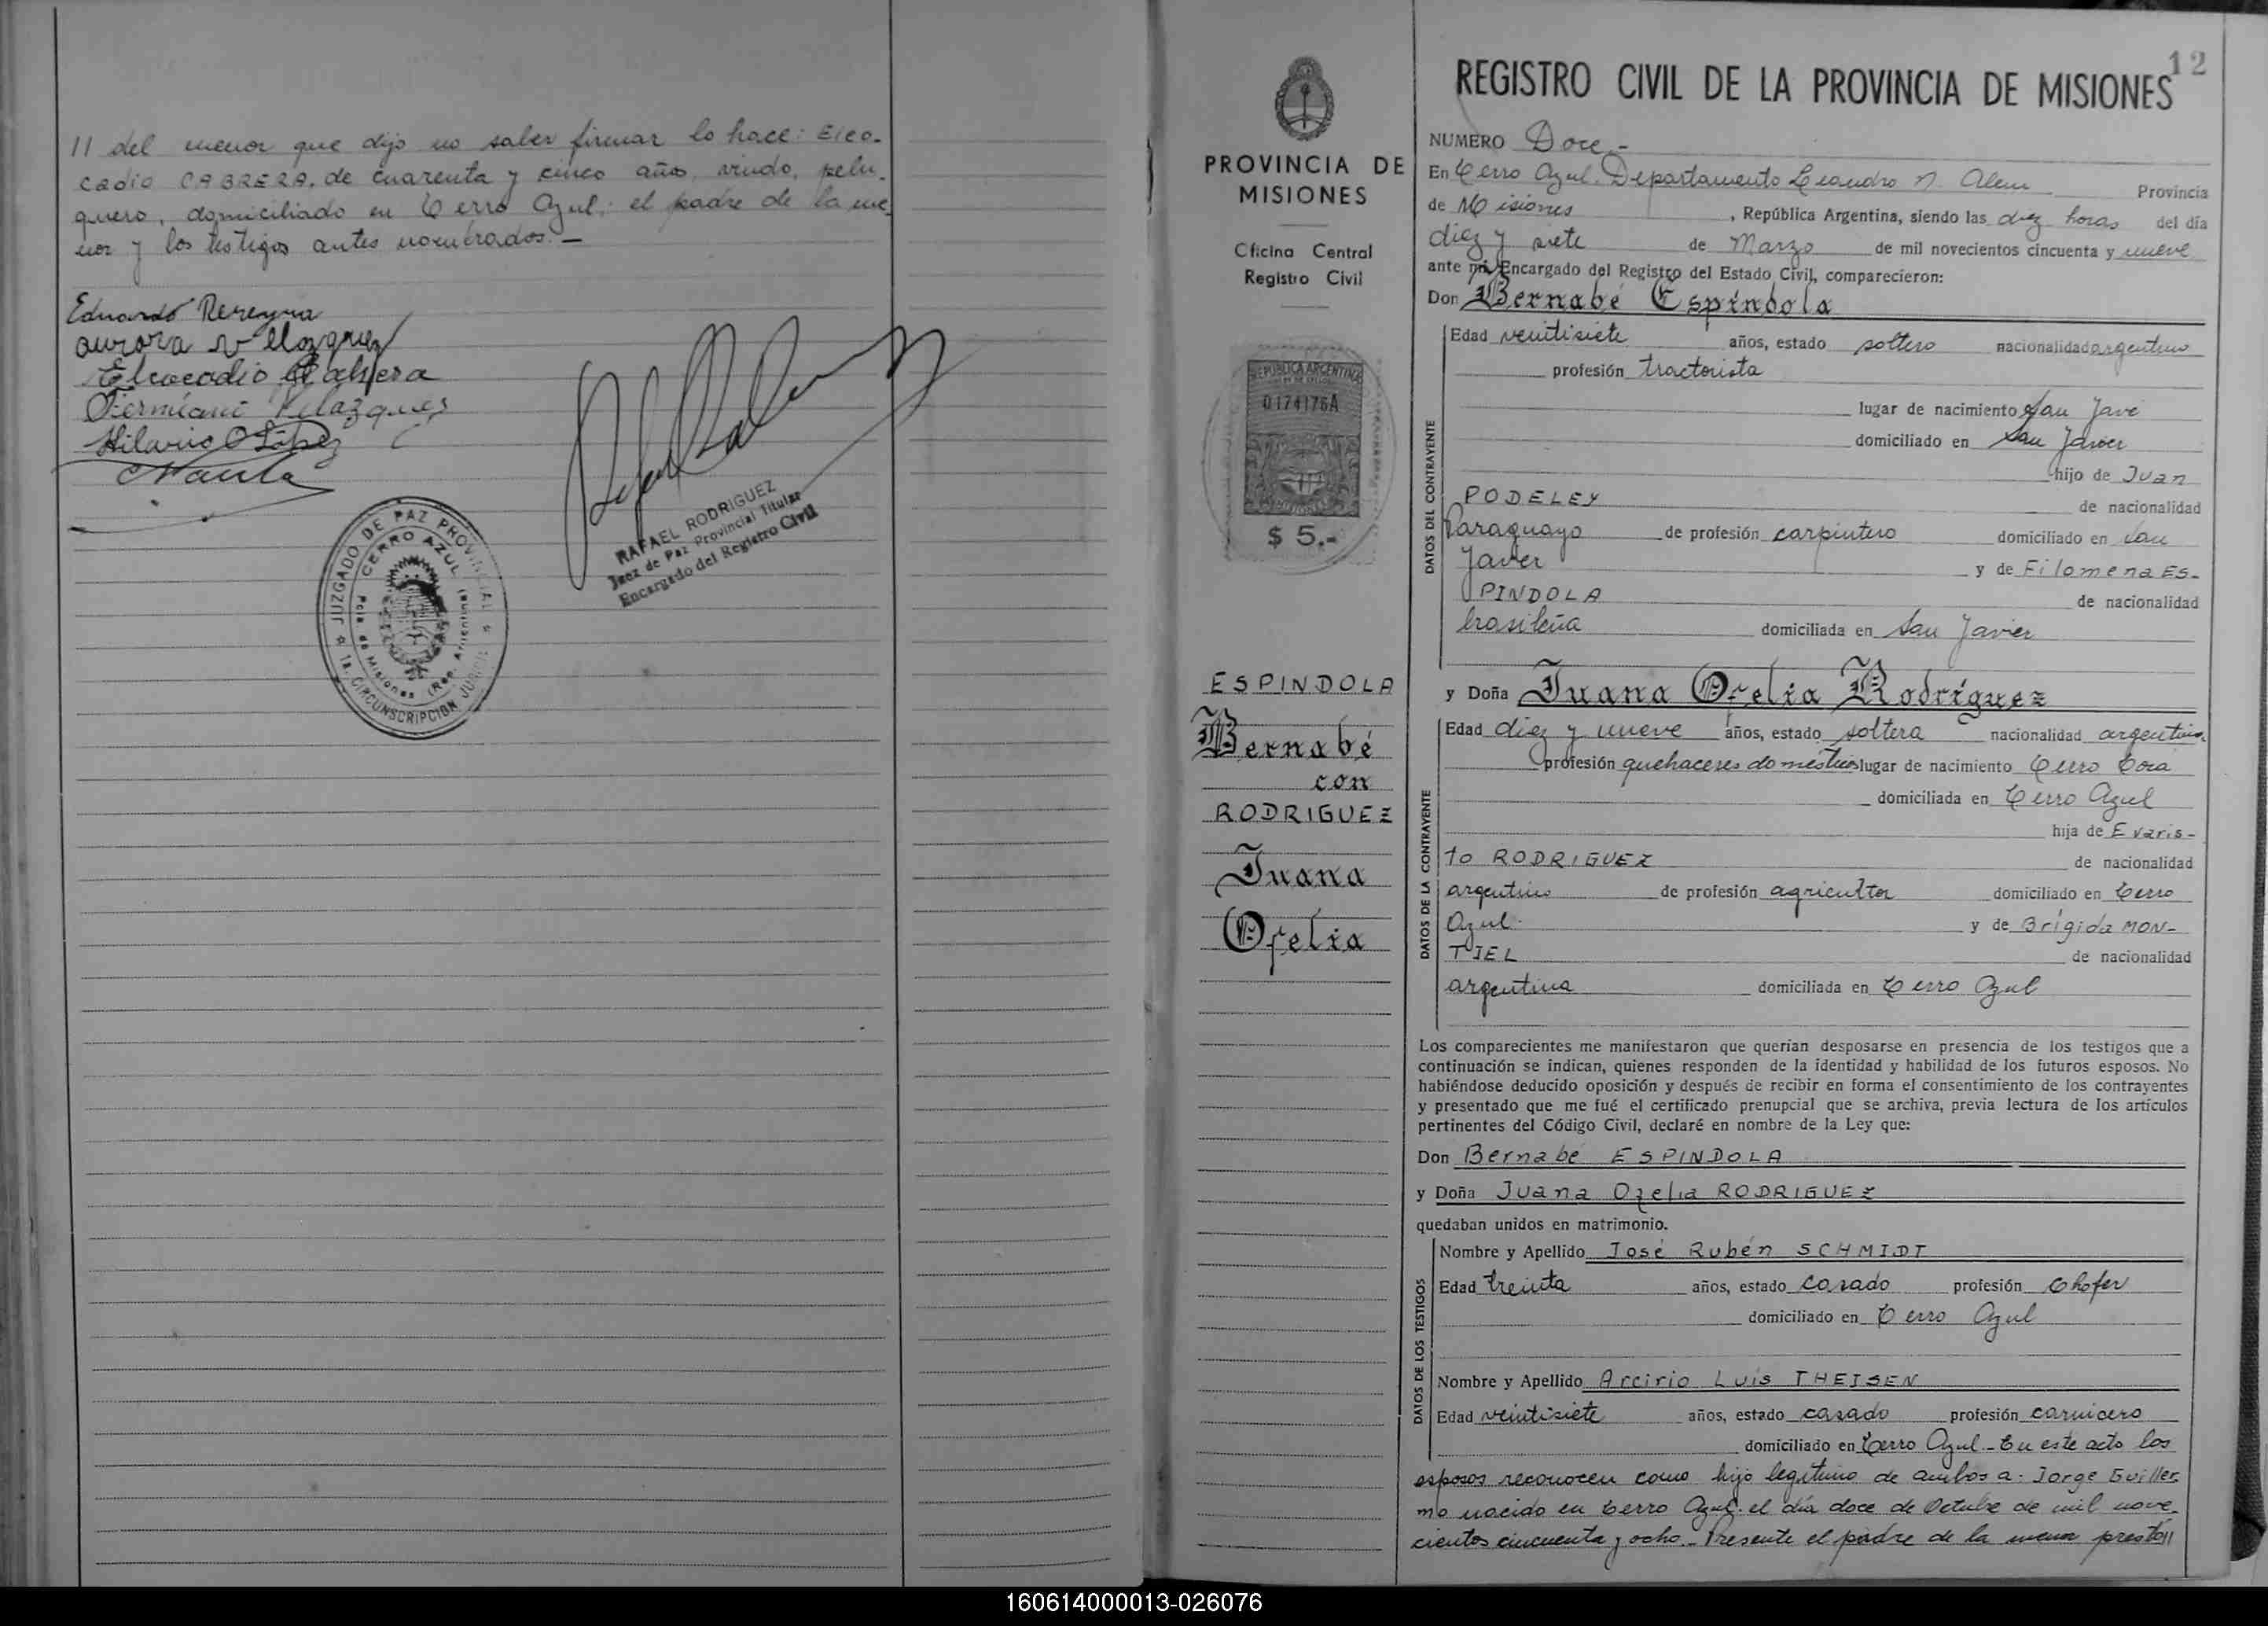 11 del menor que dijo no saber firmar lo hace: Eleo-
cadio CABRERA, de cuarenta y cinco años, viudo, pelu-
quero, domiciliado en Cerro Azul; el padre de la me-
nor y los testigos antes nombrados.—
Eduardo Pereyra
aurora Velazquez
Eleocadio Cabrera
Velazquez
Hilario O López
RAFAEL RODRIGUEZ
Juez de Paz Provincial Titular
Encargado del Registro Civil
JUZGADO DE PAZ PROVINCIAL
CERRO AZUL
Pcia. de Misiones (Rep. Argentina)
1a. CIRCUNSCRIPCION JUDICIAL
PROVINCIA DE
MISIONES
Oficina Central
Registro Civil
REPUBLICA ARGENTINA
0174176A
$ 5.-
ESPINDOLA
Bernabé
con
RODRIGUEZ
Juana
Ofelia
12
REGISTRO CIVIL DE LA PROVINCIA DE MISIONES
NUMERO Doce.-
En Cerro Azul, Departamento Leandro N. Alem Provincia
de Misiones, República Argentina, siendo las diez horas del día
diez y siete de Marzo de mil novecientos cincuenta y nueve
ante mí, Encargado del Registro del Estado Civil, comparecieron:
Don Bernabé Espíndola
DATOS DEL CONTRAYENTE
Edad veintisiete años, estado soltero nacionalidad argentino
profesión tractorista
lugar de nacimiento San Javi
domiciliado en San Javier
hijo de Juan
PODELEY de nacionalidad
Paraguayo de profesión carpintero domiciliado en San
Javier y de Filomena ES-
PINDOLA de nacionalidad
brasileña domiciliada en San Javier
y Doña Juana Ofelia Rodríguez
DATOS DE LA CONTRAYENTE
Edad diez y nueve años, estado soltera nacionalidad argentina
profesión quehaceres domésticos lugar de nacimiento Cerro Cora
domiciliada en Cerro Azul
hija de Evaris-
to RODRIGUEZ de nacionalidad
argentino de profesión agricultor domiciliado en Cerro
Azul. y de Brígida MON-
TIEL de nacionalidad
argentina domiciliada en Cerro Azul
Los comparecientes me manifestaron que querían desposarse en presencia de los testigos que a
continuación se indican, quienes responden de la identidad y habilidad de los futuros esposos. No
habiéndose deducido oposición y después de recibir en forma el consentimiento de los contrayentes
y presentado que me fué el certificado prenupcial que se archiva, previa lectura de los artículos
pertinentes del Código Civil, declaré en nombre de la Ley que:
Don Bernabé ESPINDOLA
y Doña Juana Ofelia RODRIGUEZ
quedaban unidos en matrimonio.
DATOS DE LOS TESTIGOS
Nombre y Apellido José Rubén SCHMIDT
Edad treinta años, estado casado profesión Chofer
domiciliado en Cerro Azul
Nombre y Apellido Arcirio Luis THEISEN
Edad veintisiete años, estado casado profesión carnicero
domiciliado en Cerro Azul.- En este acto los
esposos reconocen como hijo legítimo de ambos a: Jorge Guiller-
mo nacido en Cerro Azul, el día doce de Octubre de mil nove-
cientos cincuenta y ocho.- Presente el padre de la menor prestó//
160614000013-026076